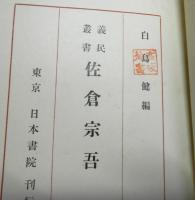 白島健編
義民叢書
佐倉宗吾
東京 日本書院 刊